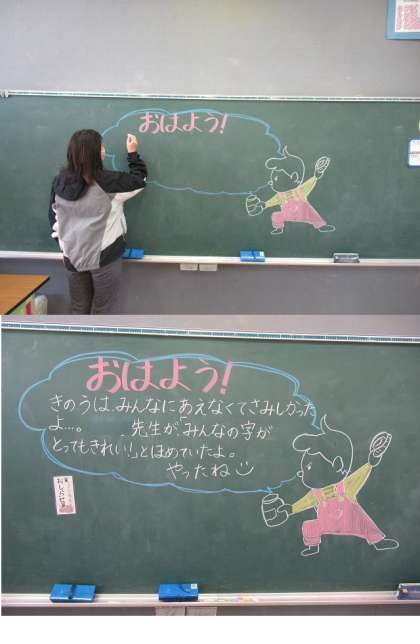 おはよう!
おはよう!
きのうは、みんなにあえなくてさみしかった
よ…。 先生が、「みんなの字が
とってもきれい!」とほめていたよ。
やったね